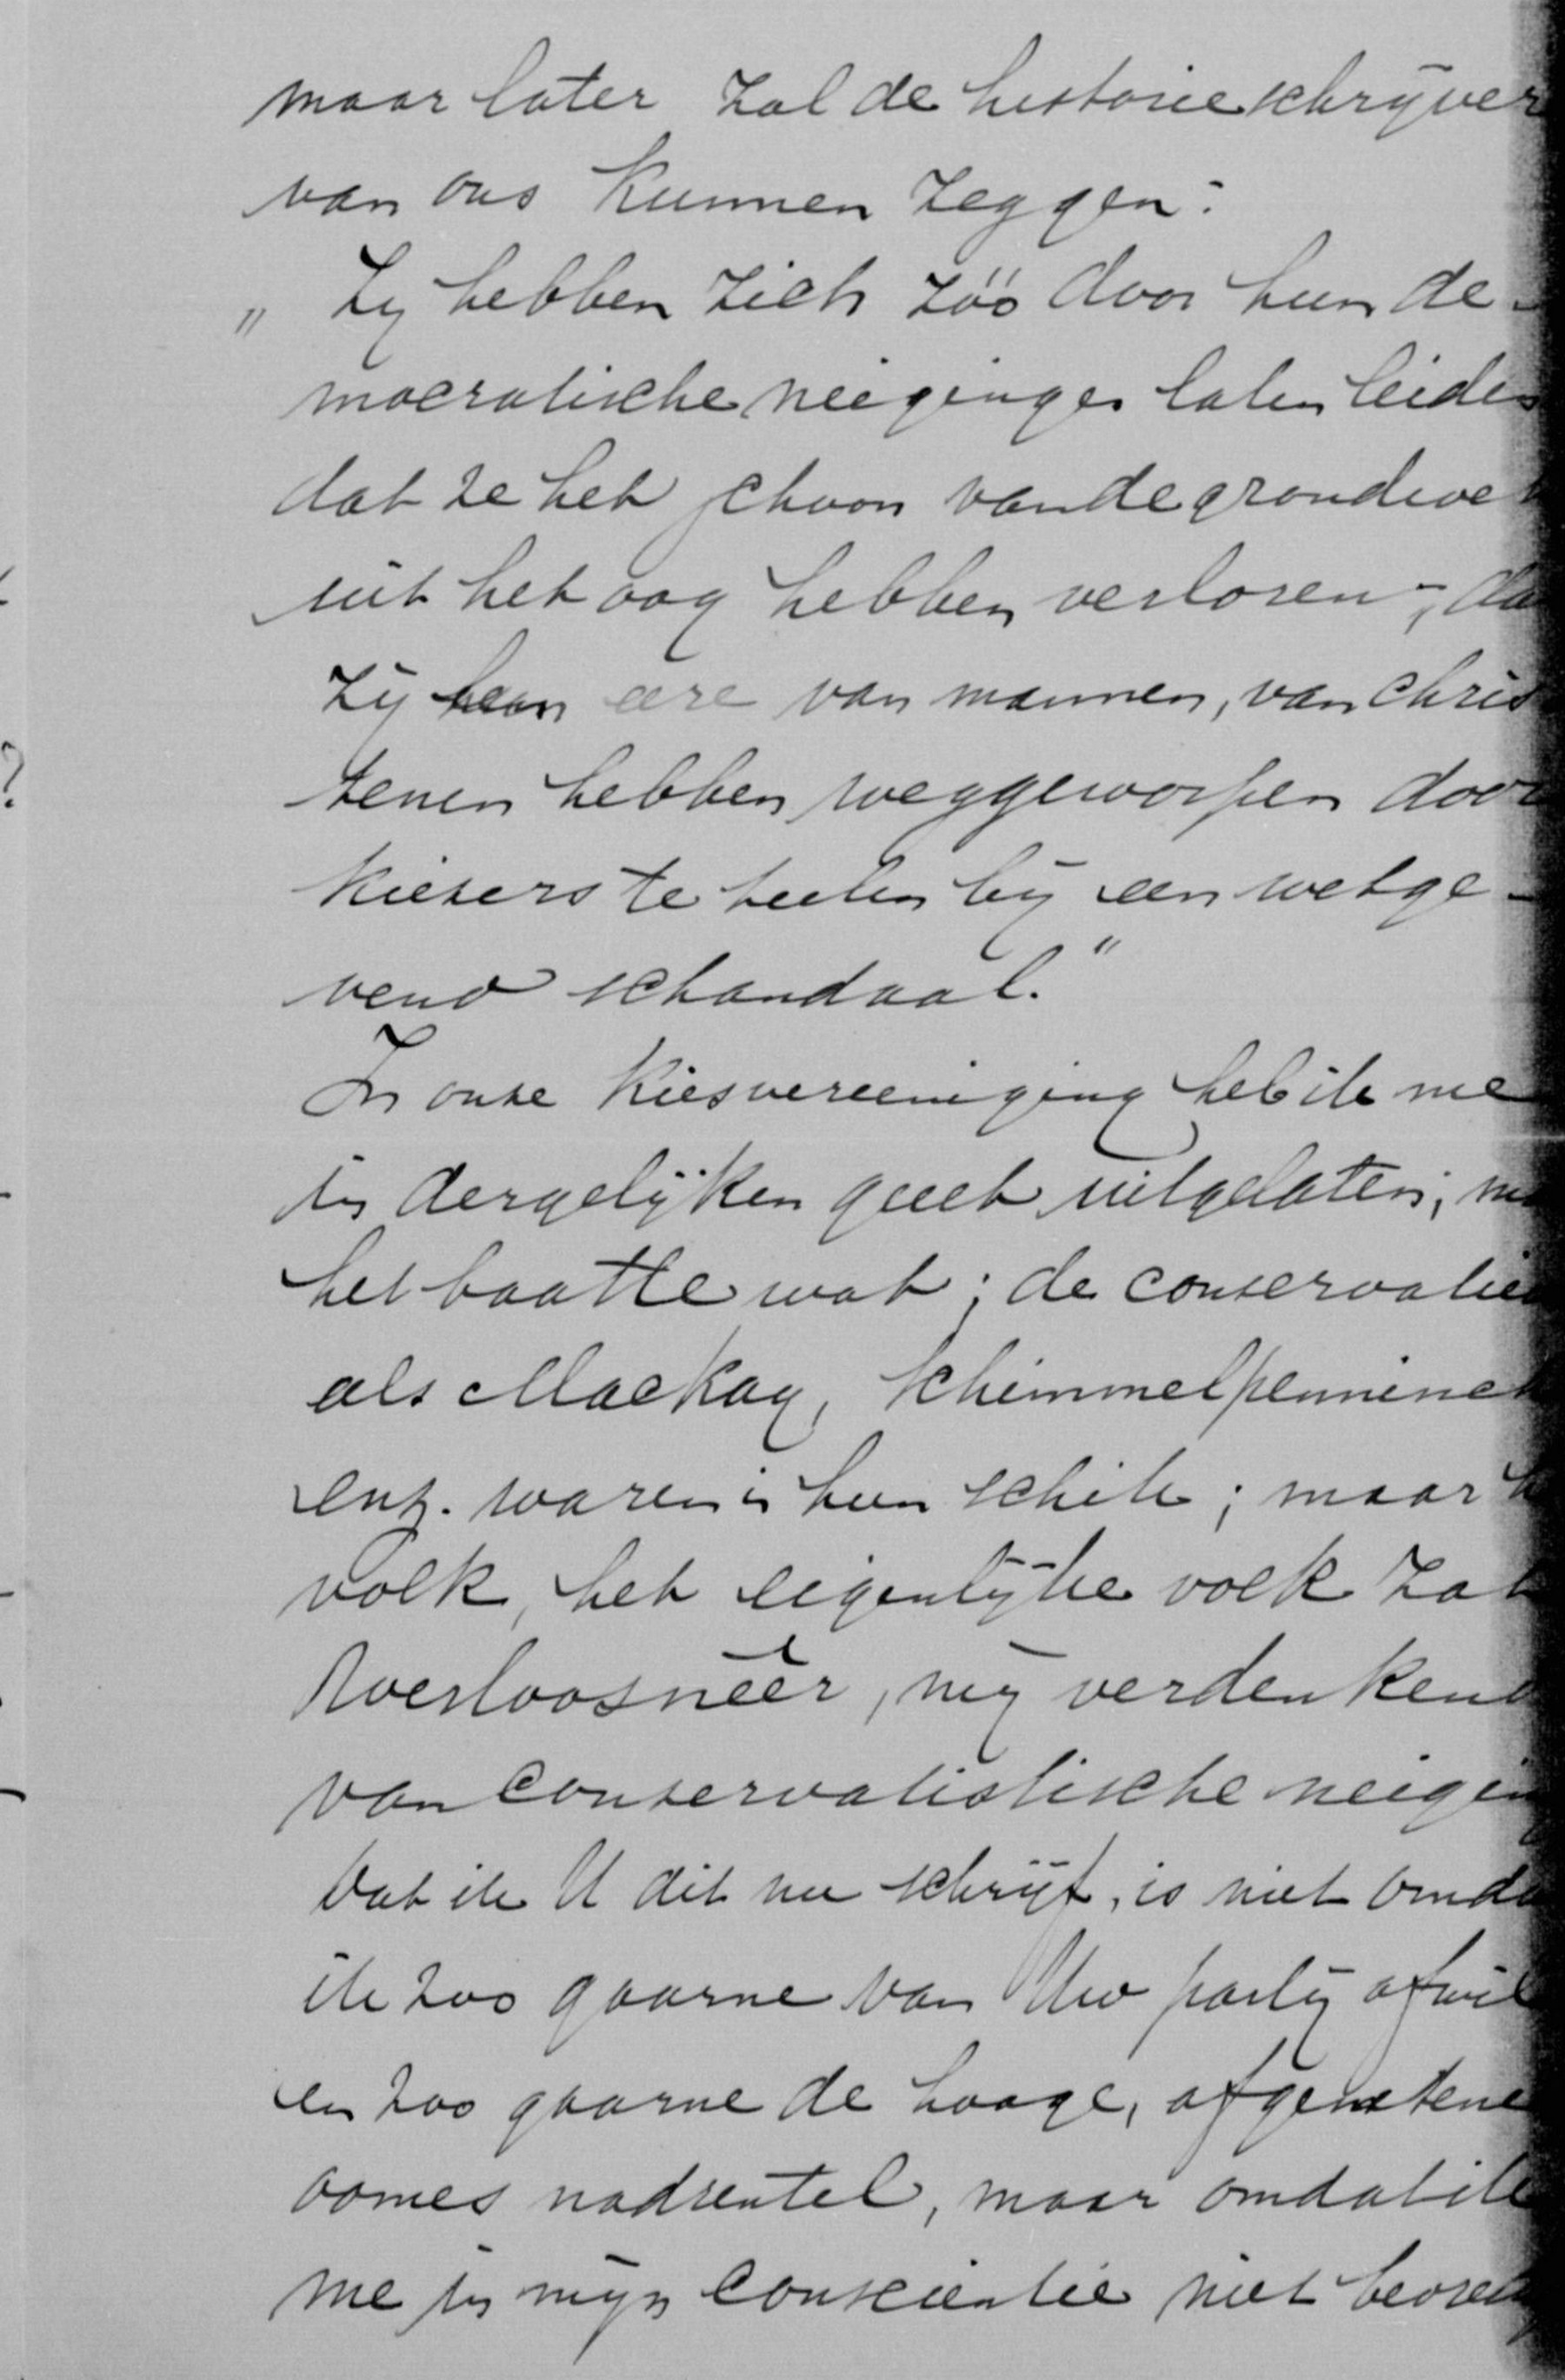 maar later zal de historieschrijver
van ons kunnen zeggen:
„ Zij hebben zich zóó door hun de-
mocratische neigingen laten leiden
dat ze het schoon van de grondwet
uit het oog hebben verloren -, da
zij hun eere van mannen, van Chris
tenen hebben weggeworpen door
kiezers te heeten bij een wetge-
vend schandaal."
In onze Kiesvereeniging heb ik me
in dergelijken geest uitgelaten; m
het baatte wat; de conservatie
als Mackay, Schimmelpenninck
enz. waren in hun schik; maar h
volk, het eigenlijke volk zat
roerloos neêr, mij verdenkend
van conservatistische neigin
Dat ik U dit nu schrijf, is niet omda
ik zoo gaarne van Uw partij afwil
en zoo gaarne de hooge,
oomes nadrentel, maar omdat ik
me in mijn conscientie niet